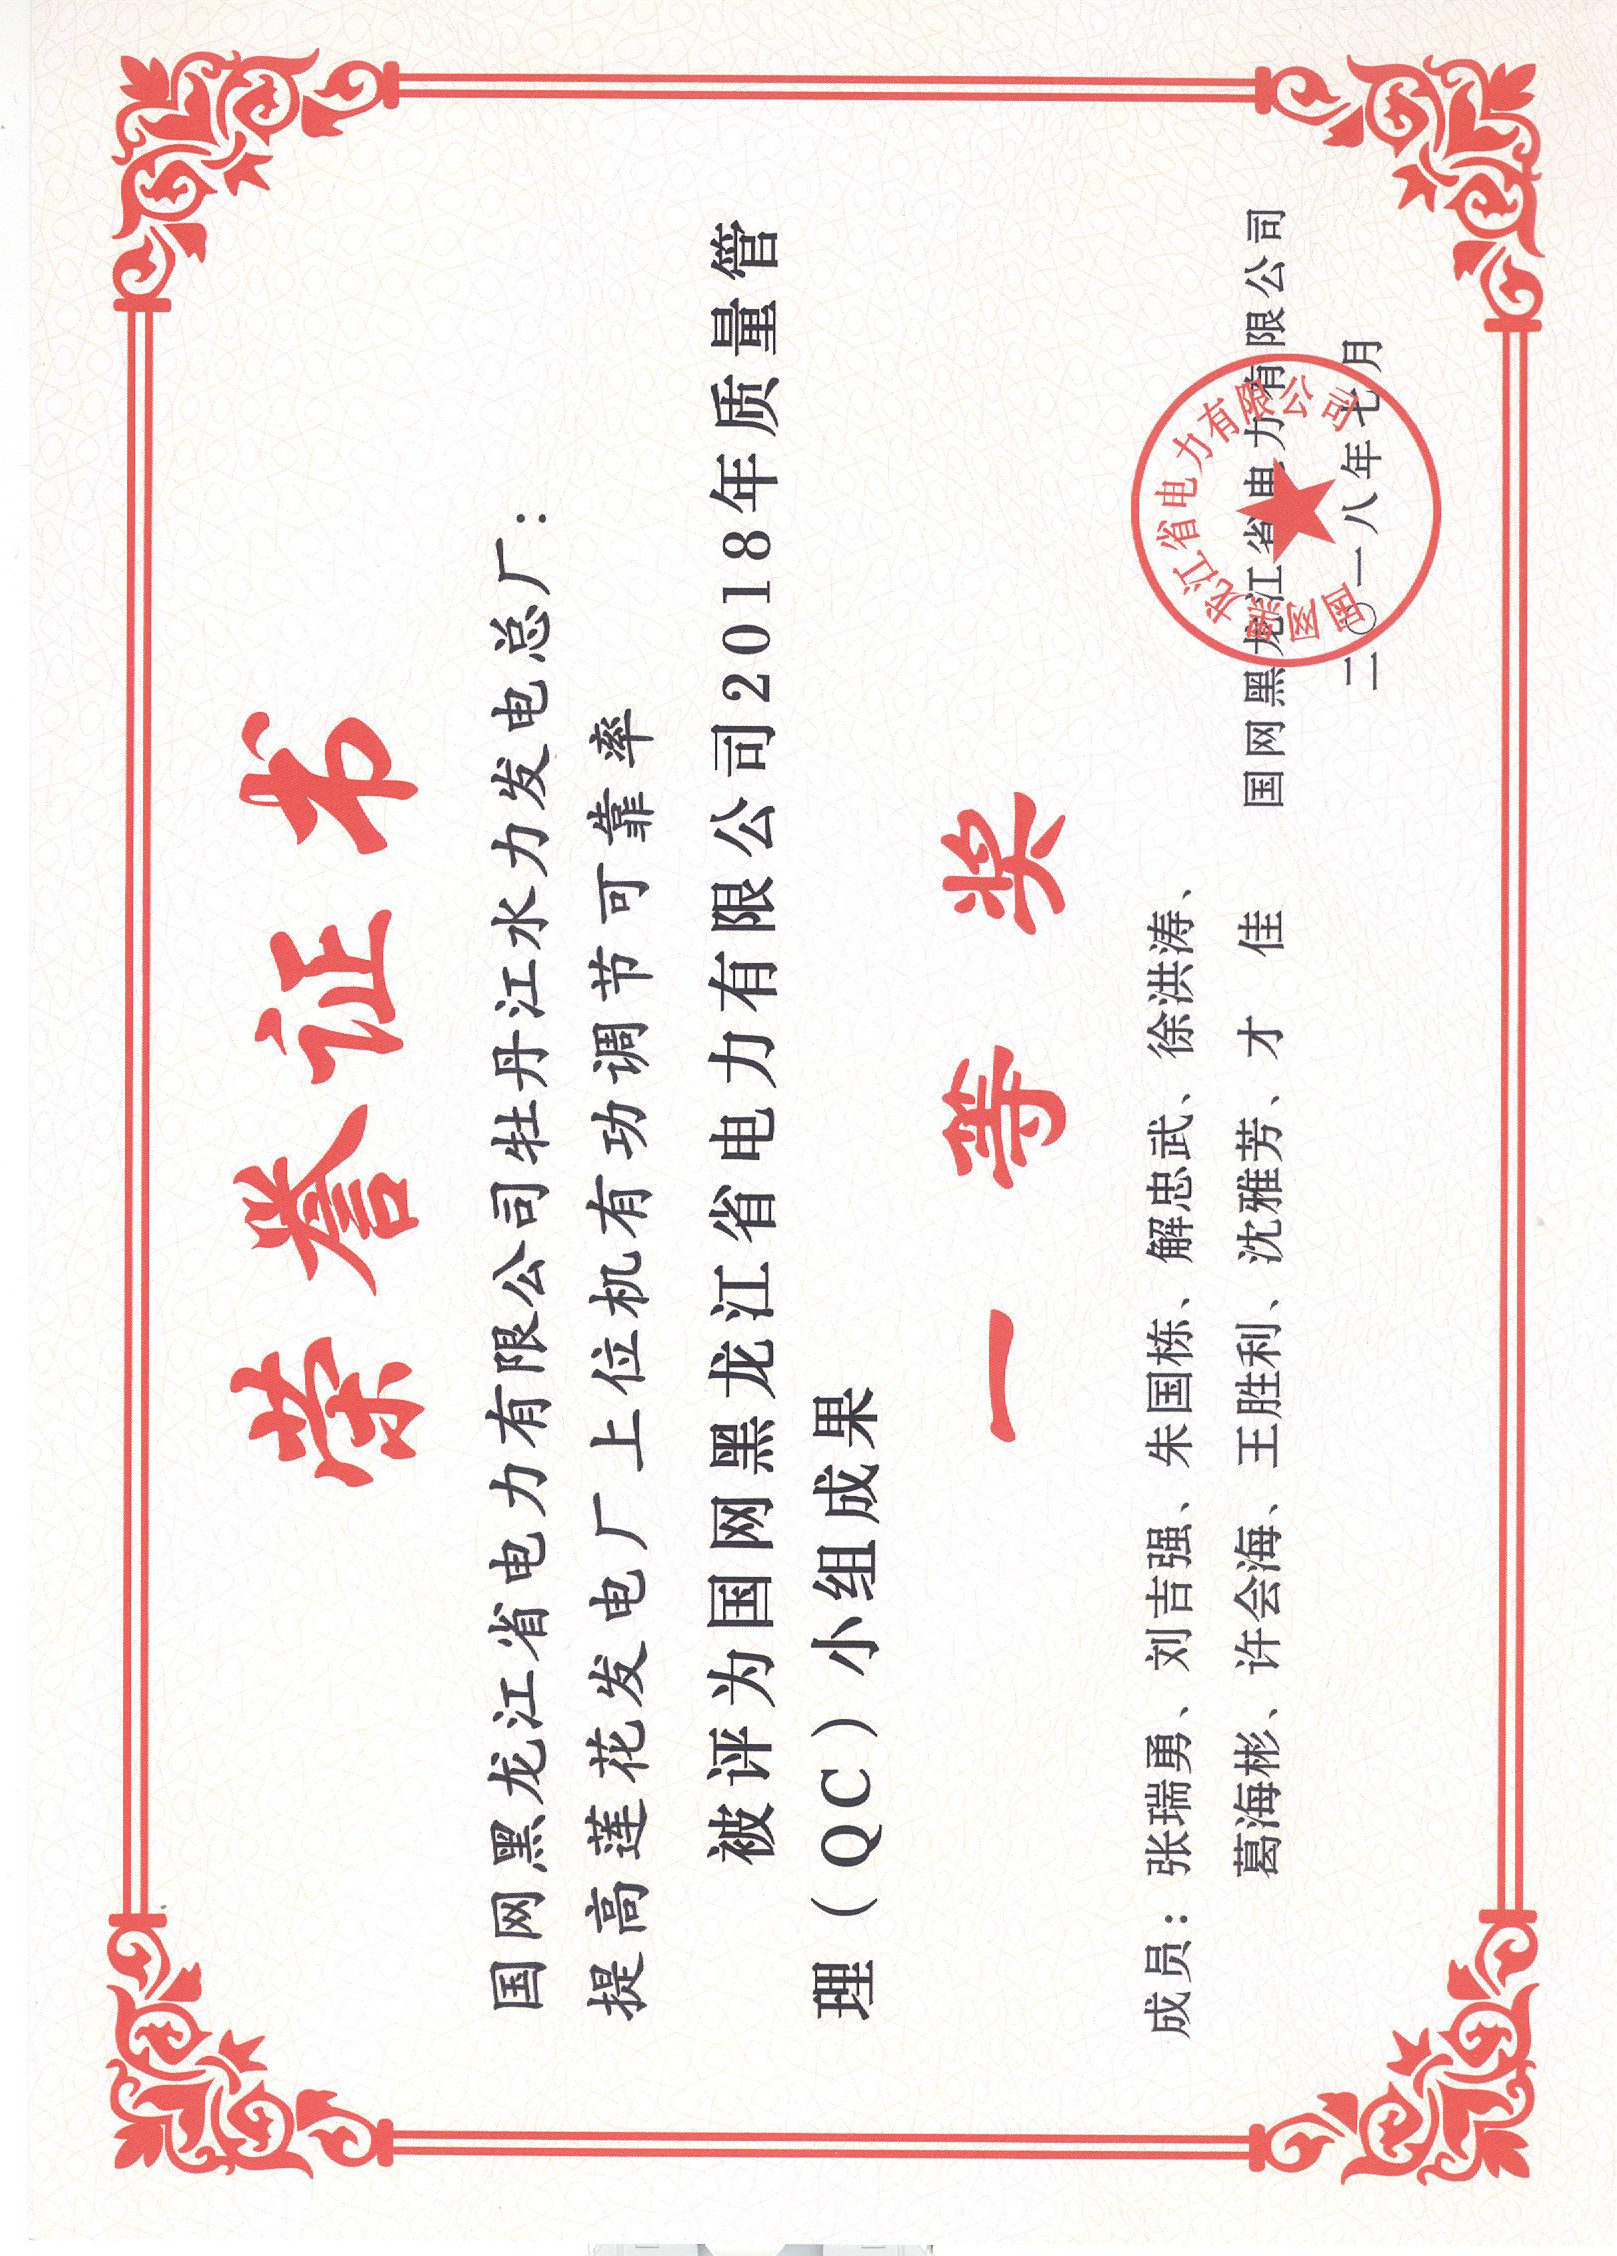 荣誉证书
国网黑龙江省电力有限公司牡丹江水力发电总厂：
提高莲花发电厂上位机有功调节可靠率
被评为国网黑龙江省电力有限公司2018年质量管
理（QC）小组成果
一等奖
成员：张瑞勇、刘吉强、朱国栋、解忠武、徐洪涛、
葛海彬、许会海、王胜利、沈雅芳、才 佳
国网黑龙江省电力有限公司
二〇一八年七月
国网黑龙江省电力有限公司